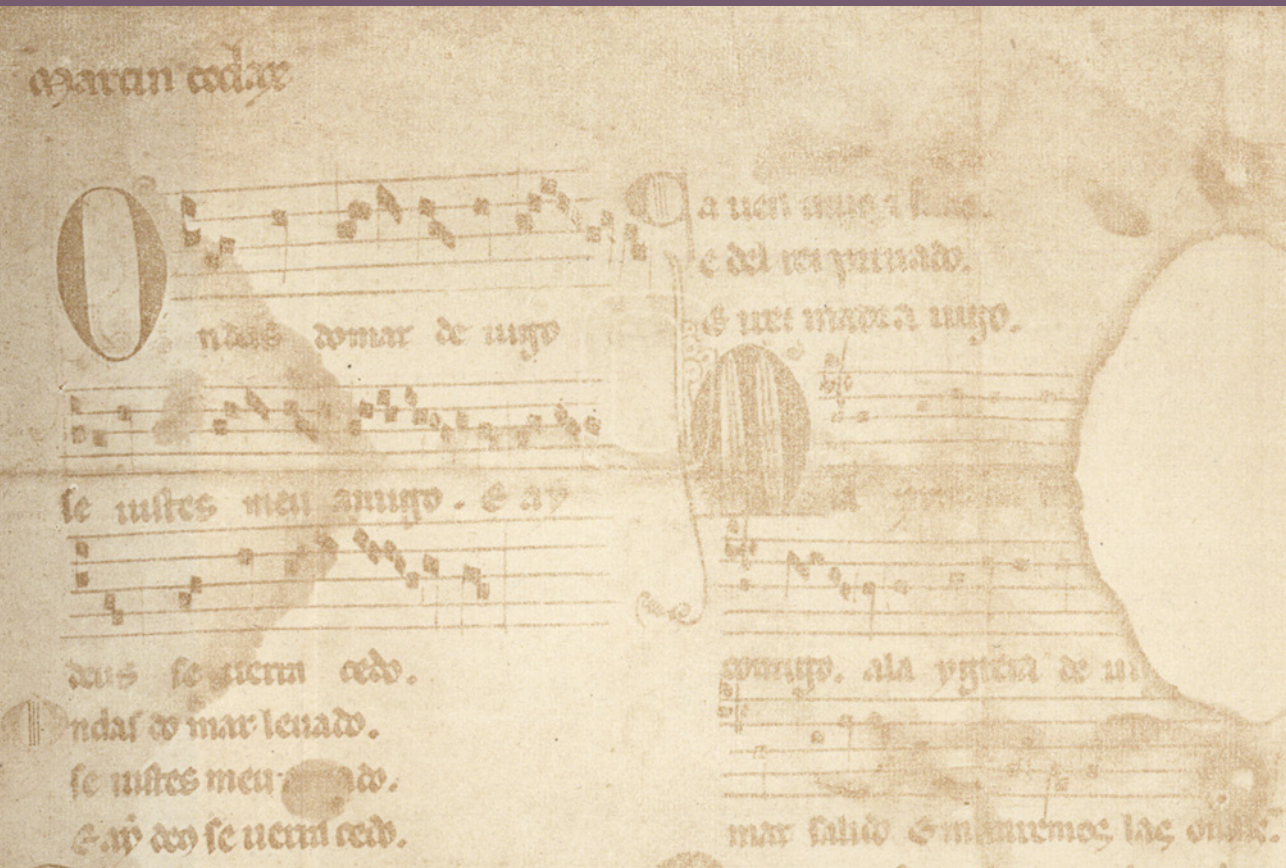 Martin codax
Ondas domar de uigo
se uistes meu amigo. E ay
deus se uerra cedo.
Ondas do mar leuado.
se uistes meu amado.
E ay deus se uerra cedo.
Ca uen e sano.
e del rei priuado.
E irei madra uigo.
comigo. ala ygreia de ui
mar salido E miraremos las ondas.